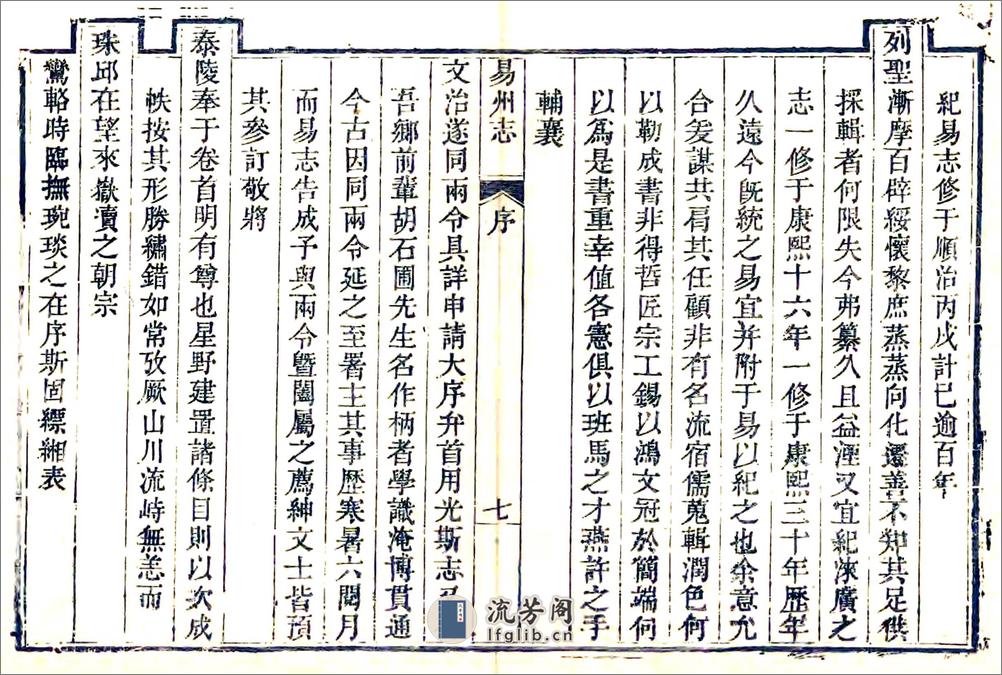 紀易志修于順治丙戌計已逾百年
列聖漸摩百辟綏懷黎庶蒸蒸向化遷善不知其足供
採輯者何限失今弗纂久且益湮又宜紀淶廣之
志一修于康熙十六年一修于康熙三十年歷年
久遠今旣統之易宜并附于易以紀之也余意允
合爰謀共肩其任顧非有名流宿儒蒐輯潤色何
以勒成書非得哲匠宗工錫以鴻文冠於簡端何
以爲是書重幸值各憲俱以班馬之才燕許之手
輔襄
文治遂同兩令具詳申請大序弁首用光斯志
吾鄉前輩胡石圃先生名作柄者學識淹博貫通
今古因同兩令延之至署主其事歷寒暑六閱月
而易志告成予與兩令曁闔屬之薦紳文士皆預
其參訂敬將
泰陵奉于卷首明有尊也星野建置諸條目則以次成
帙按其形勝繡錯如常攷厥山川流峙無恙而
珠邱在望來嶽瀆之朝宗
鸞輅時臨撫琬琰之在序斯固縹緗表
易州志
序
七
流芳阁
lfglib.cn